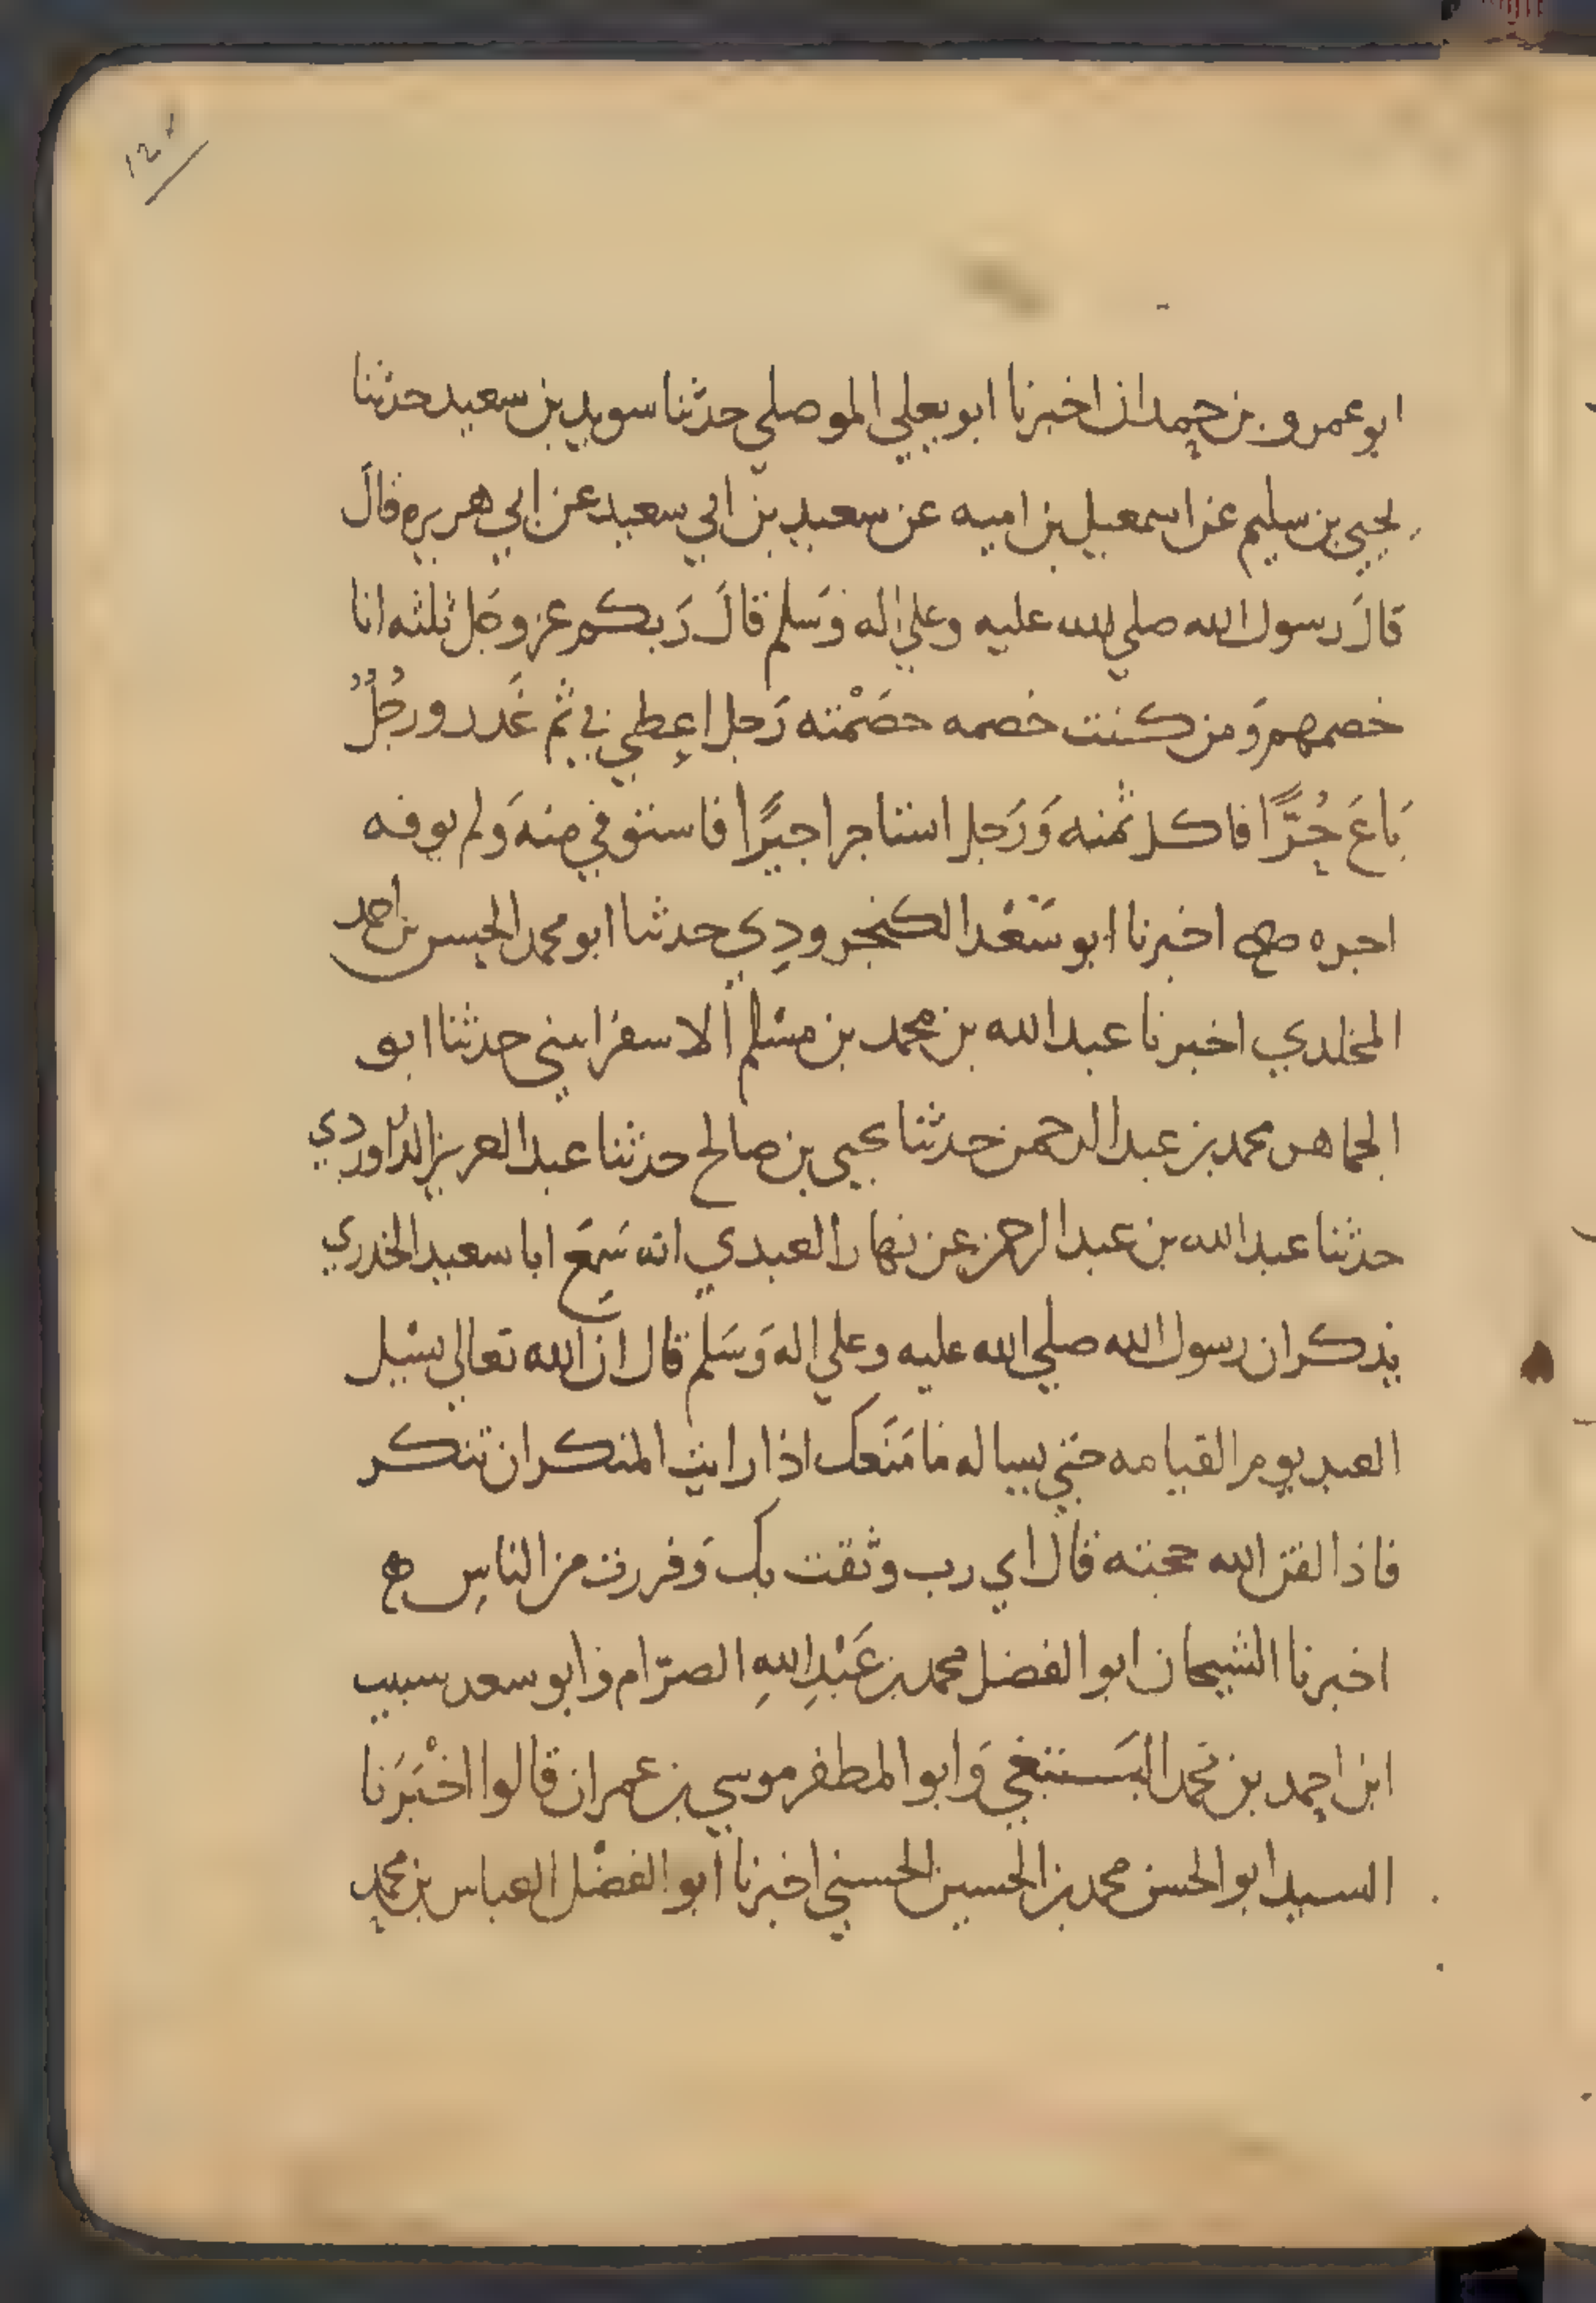 ابو عمرو بن حمدان اخبرنا ابو يعلي الموصلي حدثنا سويد بن سعيد حدثنا
يحيي بن سليم عن اسمعيل بن اميه عن سعيد بن ابي سعيد عن ابي هريره قالَ
قالَ رسول الله صلي الله عليه وعلي اله وَسَلم قالَ رَبكم عز وجَل ثلثه انا
خصمهم وَمن كنت خصمه خصَمْته رَجل اعطي بي ثم غَدر ورجُلٌ
بَاعَ حُرًّا فاكل ثمنه وَرَجل استاجر اجيرًا فاستوفي منه وَلم يوفه
اجره اخبرنا ابو سَعْد الكنجرودِي حدثنا ابو محمد الحسن بن احمد
المخلدي اخبرنا عبد الله بن محمد بن مسْلم الاسفرَايني حدثنا ابو
الجماهر محمد بن عبد الرحمن حدثنا يحيي بن صالح حدثنا عبد العزيز الدراوردي
حدثنا عبد الله بن عبد الرحمن عن نهار العبدي انه سَمِعَ ابا سعيد الخدري
يذكر ان رسول الله صلي الله عليه وعلي اله وَسَلم قال ان الله تعالي يسْيل
العبد يوم القيامه حتي يساله مَا مَنَعك اذا رايت المنكر ان تنكر
فاذا لقن الله حجته قال اي رب وثقت بك وَفررت من الناسِ
اخبرنا الشيخان ابو الفضل محمد بن عَبْدِ اللهِ الصرّام وَابو سعد سبيب
ابن احمد بن محمد البَستيغي وَابو المظفر موسي بن عمران قالوا اخْبَرَنا
السيد ابو الحسن محمد بن الحسين الحسني اخبرنا ابو الفضْل العباس بن محمد